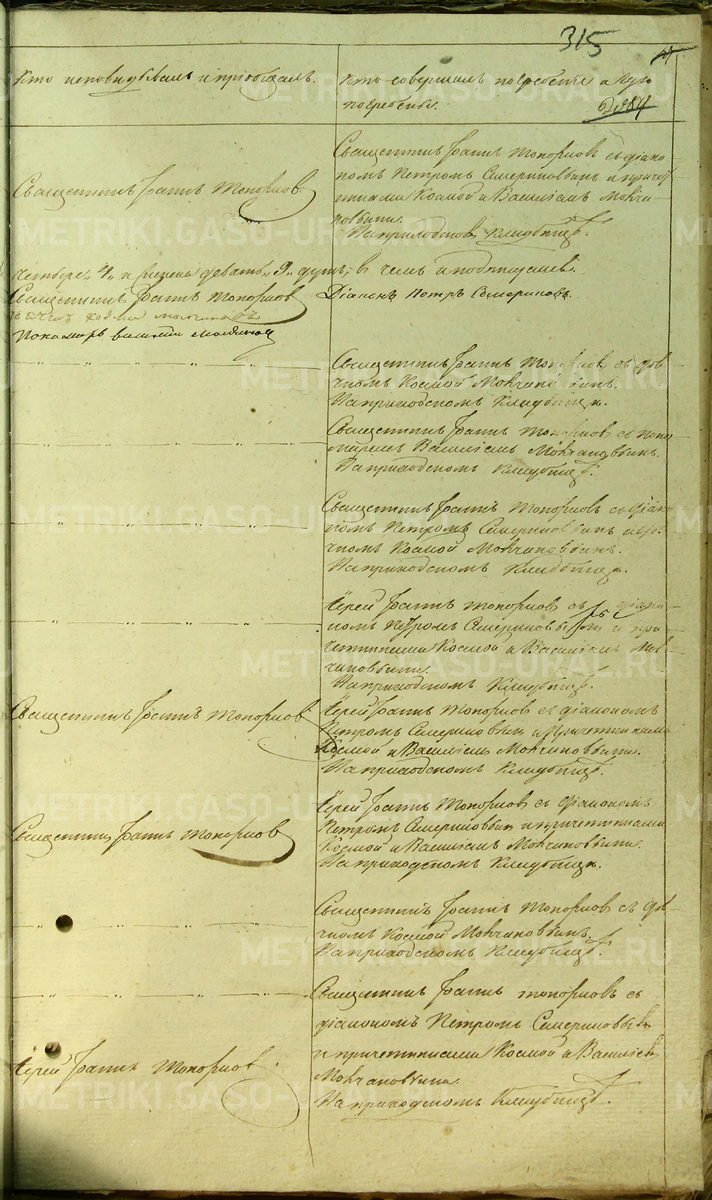 315
Кто исповедывалъ и пріобщалъ.
Кто совершалъ погребеніе и гдѣ
погребены.
Священникъ Іоаннъ Топорковъ
Священникъ Іоаннъ Топорковъ съ діако-
номъ Петромъ Семериковымъ и причет-
никами Космой и Василіемъ Молча-
новыми.
На приходскомъ кладбищѣ.
четыре "4" и женска девять "9" душъ, въ чемъ и подписуемся.
Священникъ Іоаннъ Топорковъ
Діаконъ Петръ Семериковъ.
Пономарь Василій Молчановъ
Священникъ Іоаннъ Топорковъ съ дья-
чкомъ Космой Молчановымъ.
На приходскомъ кладбищѣ.
Священникъ Іоаннъ Топорковъ съ поно-
маремъ Василіемъ Молчановымъ.
На приходскомъ кладбищѣ.
Священникъ Іоаннъ Топорковъ съ діако-
номъ Петромъ Семериковымъ и дья-
чкомъ Космой Молчановымъ.
На приходскомъ кладбищѣ.
Іерей Іоаннъ Топорковъ съ діако-
номъ Петромъ Семериковымъ и при-
четниками Космой и Василіемъ Мол-
чановыми.
На приходскомъ кладбищѣ.
Священникъ Іоаннъ Топорковъ
Іерей Іоаннъ Топорковъ съ діакономъ
Петромъ Семериковымъ и причетниками
Космой и Василіемъ Молчановыми.
На приходскомъ кладбищѣ.
Священникъ Іоаннъ Топорковъ
Іерей Іоаннъ Топорковъ съ діакономъ
Петромъ Семериковымъ и причетниками
Космой и Василіемъ Молчановыми.
На приходскомъ кладбищѣ.
Священникъ Іоаннъ Топорковъ съ дья-
чкомъ Космой Молчановымъ.
На приходскомъ кладбищѣ.
Священникъ Іоаннъ Топорковъ съ
діакономъ Петромъ Семериковымъ
и причетниками Космой и Василіемъ
Молчановыми.
На приходскомъ кладбищѣ.
Іерей Іоаннъ Топорковъ
METRIKI.GASO-URAL.RU